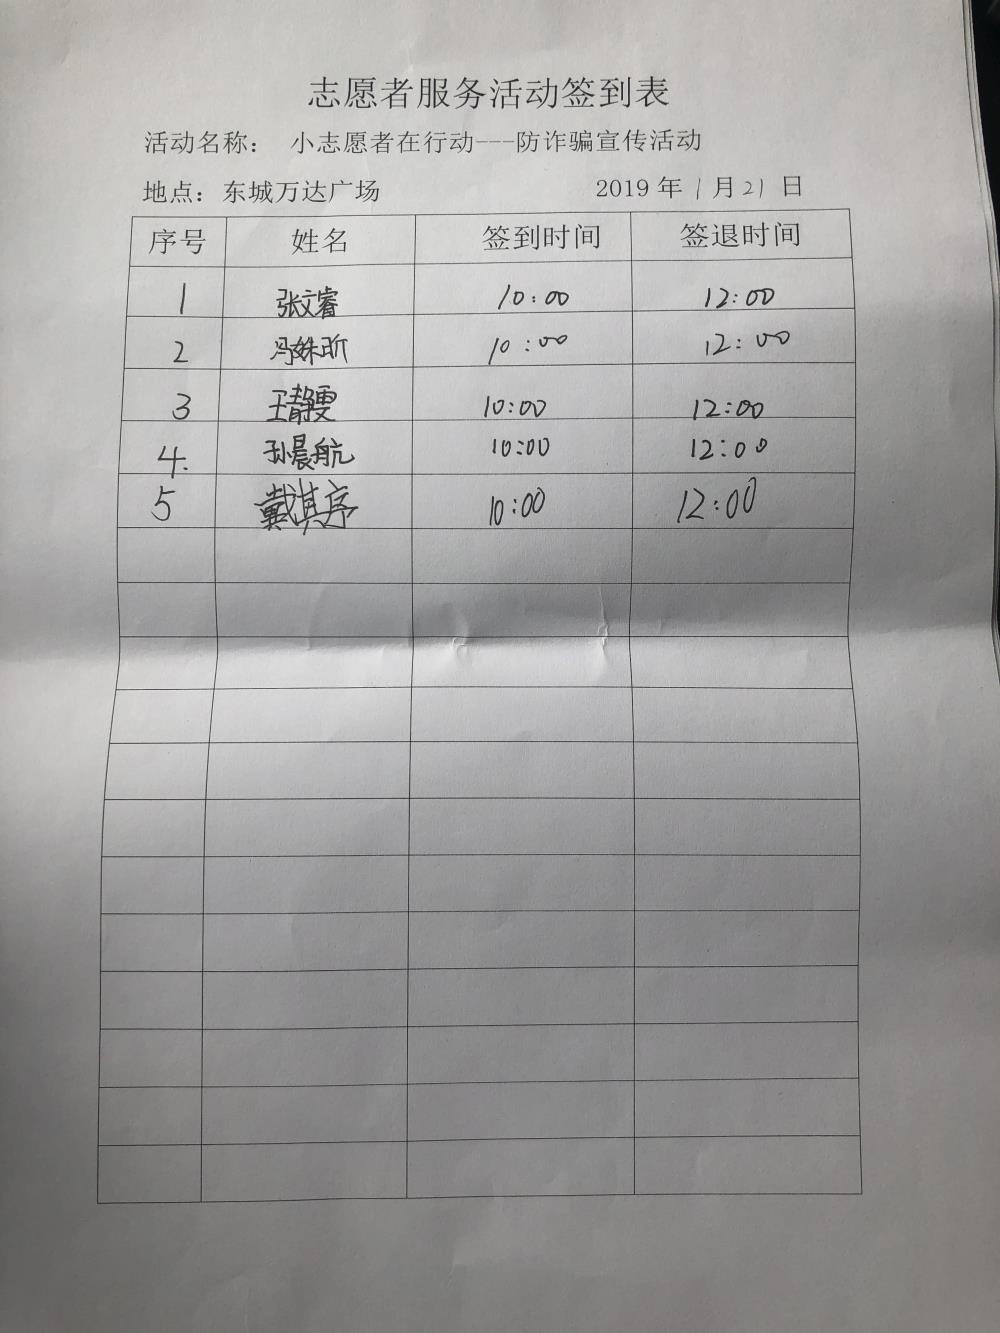 志愿者服务活动签到表
活动名称： 小志愿者在行动---防诈骗宣传活动
地点：东城万达广场 2019 年 1 月 21 日
序号 姓名 签到时间 签退时间
1 张文睿 10:00 12:00
2 冯姝昕 10:00 12:00
3 王静雯 10:00 12:00
4. 孙晨航 10:00 12:00
5 戴淇序 10:00 12:00